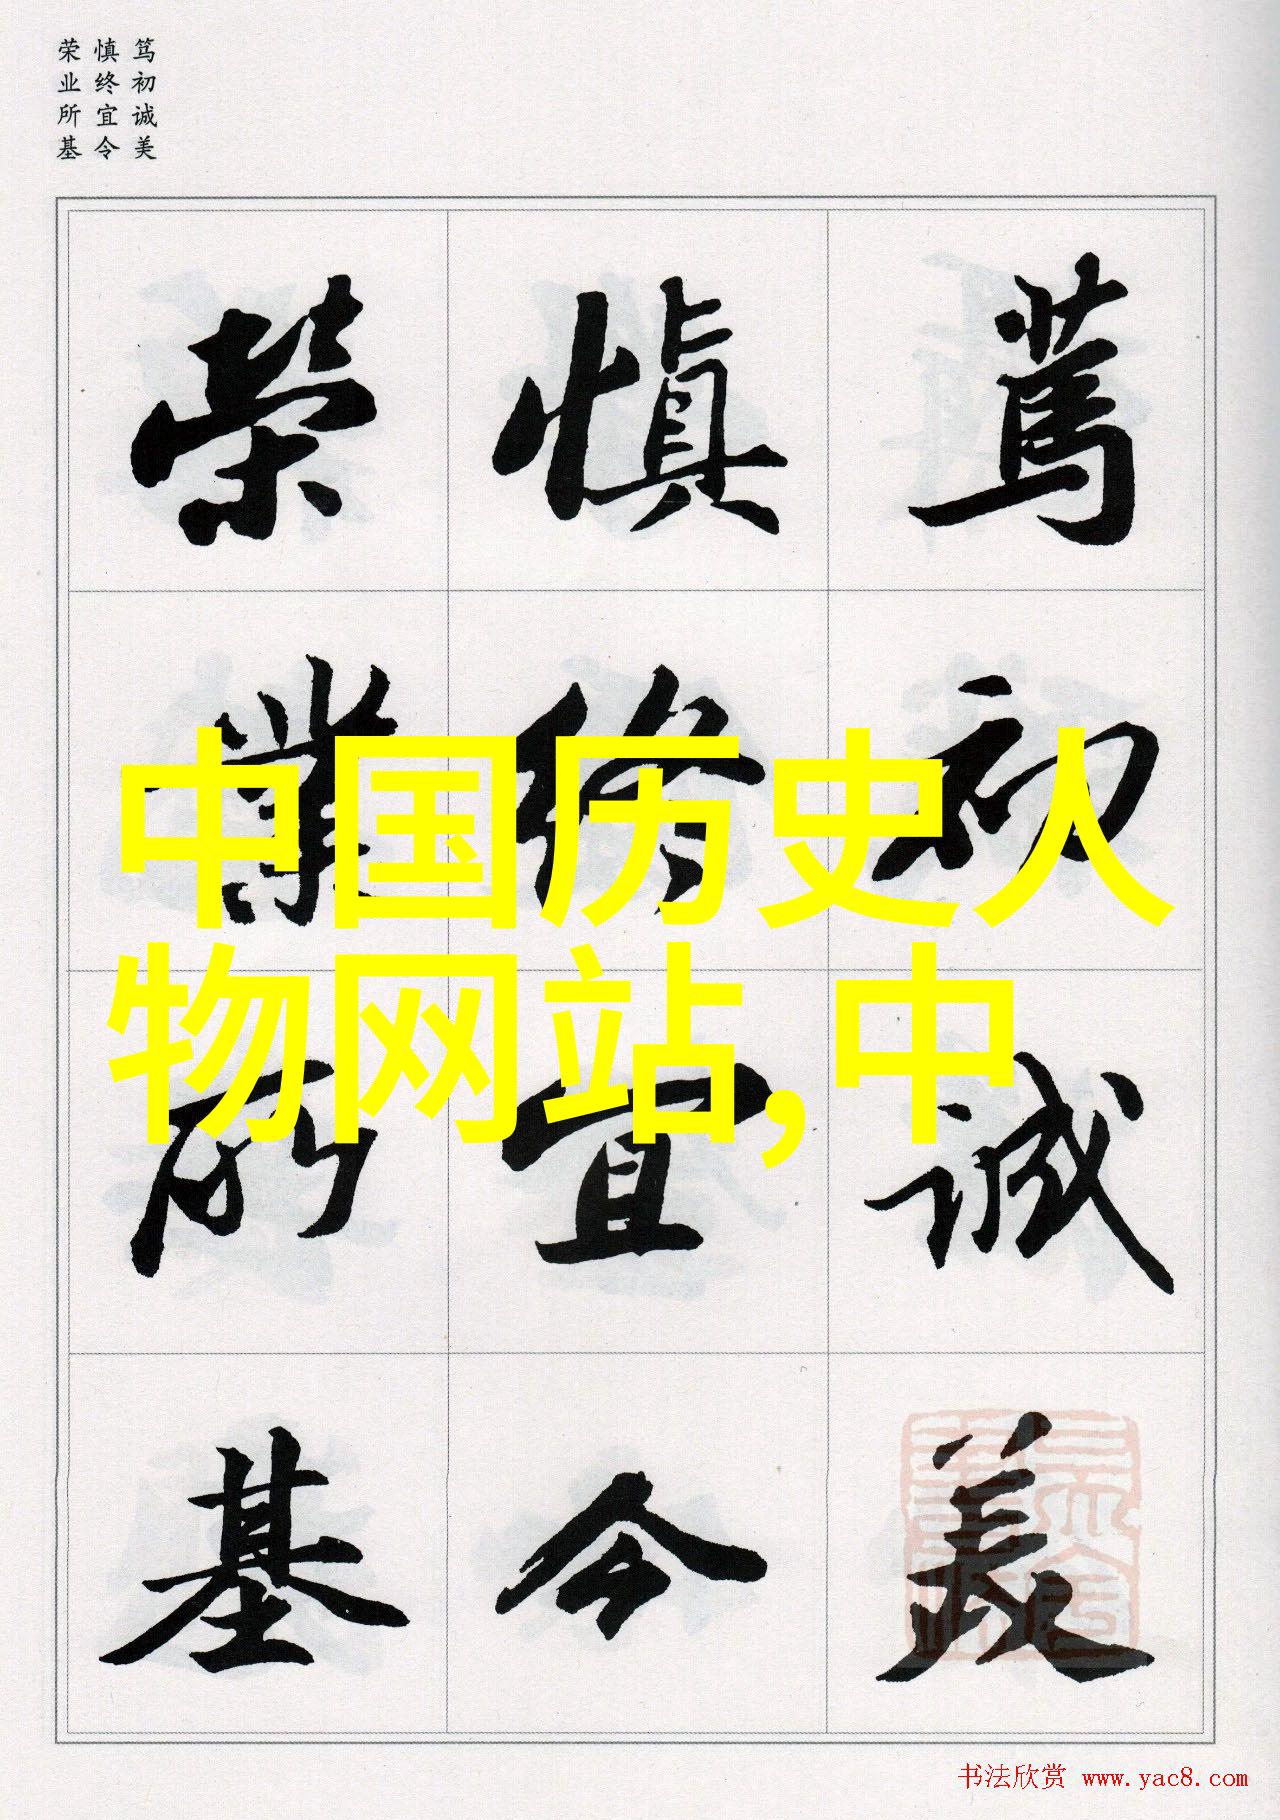 笃初诚美
慎终宜令
荣业所基
篤初诚美
慎终宜令
榮業所基
中国历史人
物网站,中
书法欣赏 www.yac8.com